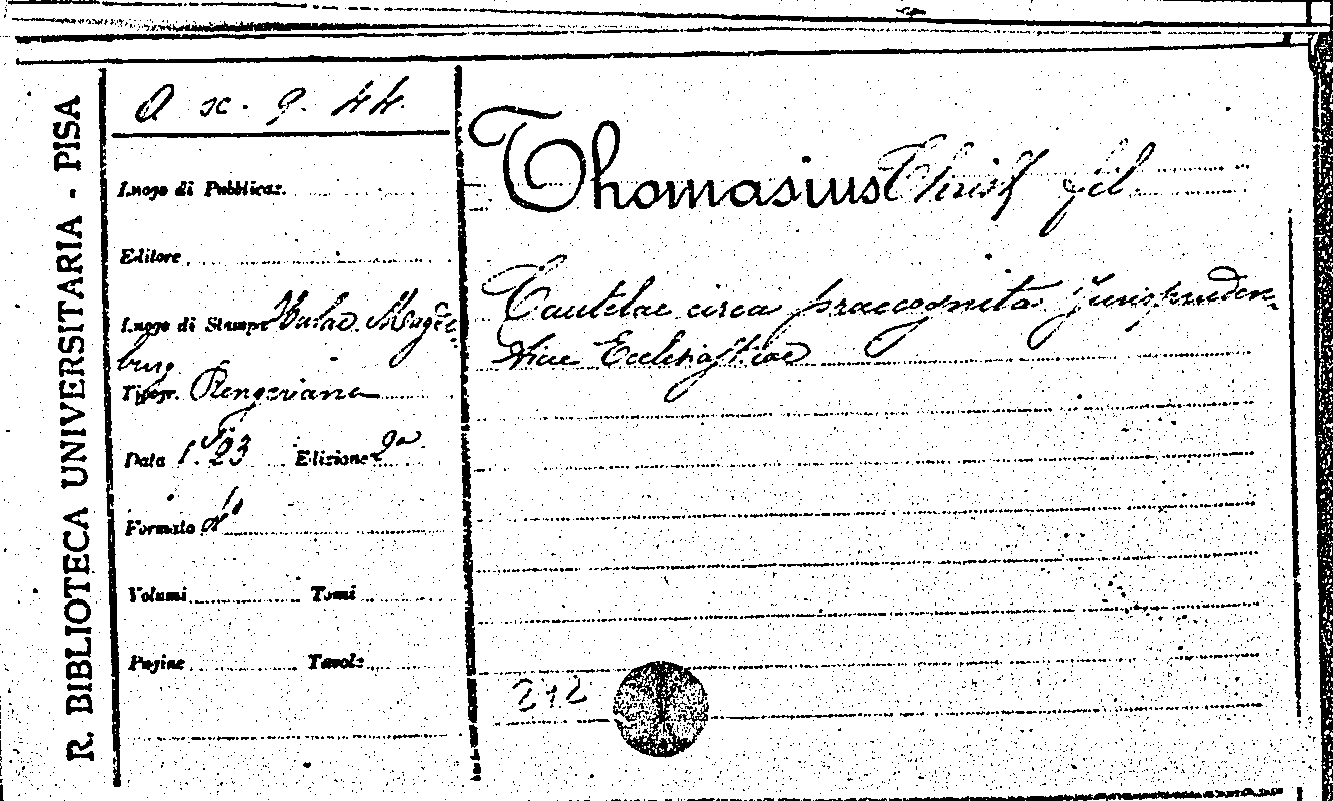 R. BIBLIOTECA UNIVERSITARIA - PISA
Q x. 9. 44.
Luogo di Pubblicaz.
Editore
Luogo di Stampa Halae Magde-
burg
Tipogr. Rengeriana
Data 1723 Edizione 2a
Formato 4°
Volumi Tomi
Pagine Tavole
Thomasius Christ fil.
Cautelae circa praecognita Jurispruden-
tiae Ecclesiasticae
212